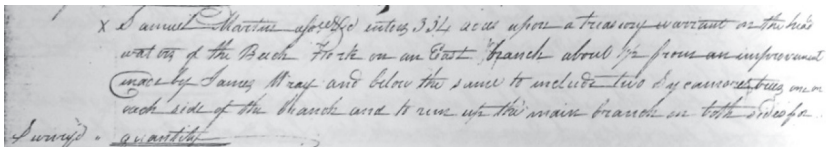 x Samuel Martin ass&c enters 334 acres upon a treasury warrant on the head
waters of the Beech Fork on an East branch about 1/2 from an improvement
made by James Wray and below the same to include two Sycamore trees one on
each side of the branch and to run up the main branch on both sides for
Survey'd quantity